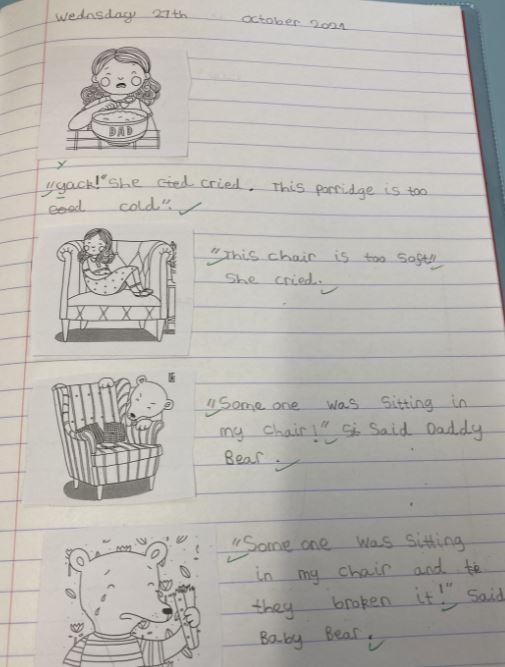 Wednsday 27th October 2021
DAD
"yack!" She cried. This porridge is too
cold".
"This chair is too soft"
She cried.
"Some one was sitting in
my chair!" Said Daddy
Bear.
"Some one was sitting
in my chair and
they broken it!" Said
Baby Bear.